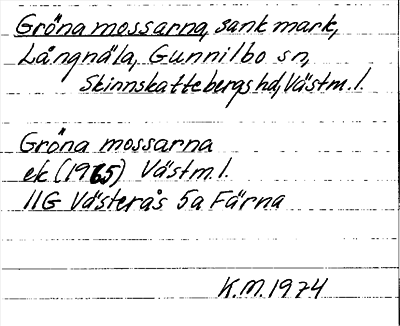 Gröna mossarna, sank mark,
Långnäla, Gunnilbo sn,
Skinnskattebergs hd, Västm.l.
Gröna mossarna
ek (1965) Västm.l.
11G Västerås 5a Färna
K.M. 1974